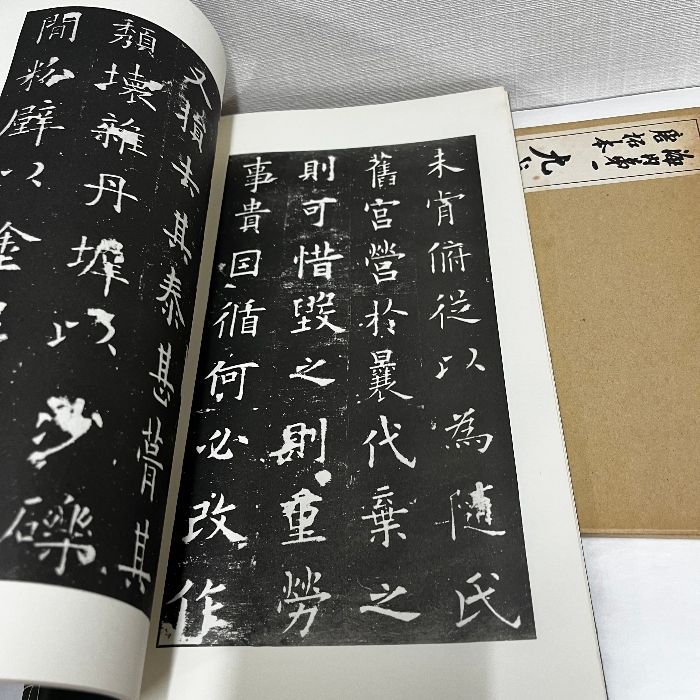 未肯俯從以為隨氏
舊宮營於曩代棄之
則可惜毀之則重勞
事貴因循何必改作
又損去其泰甚葺其
頽壞雜丹墀以沙礫
間粉壁以塗
海內第一
唐拓本
九